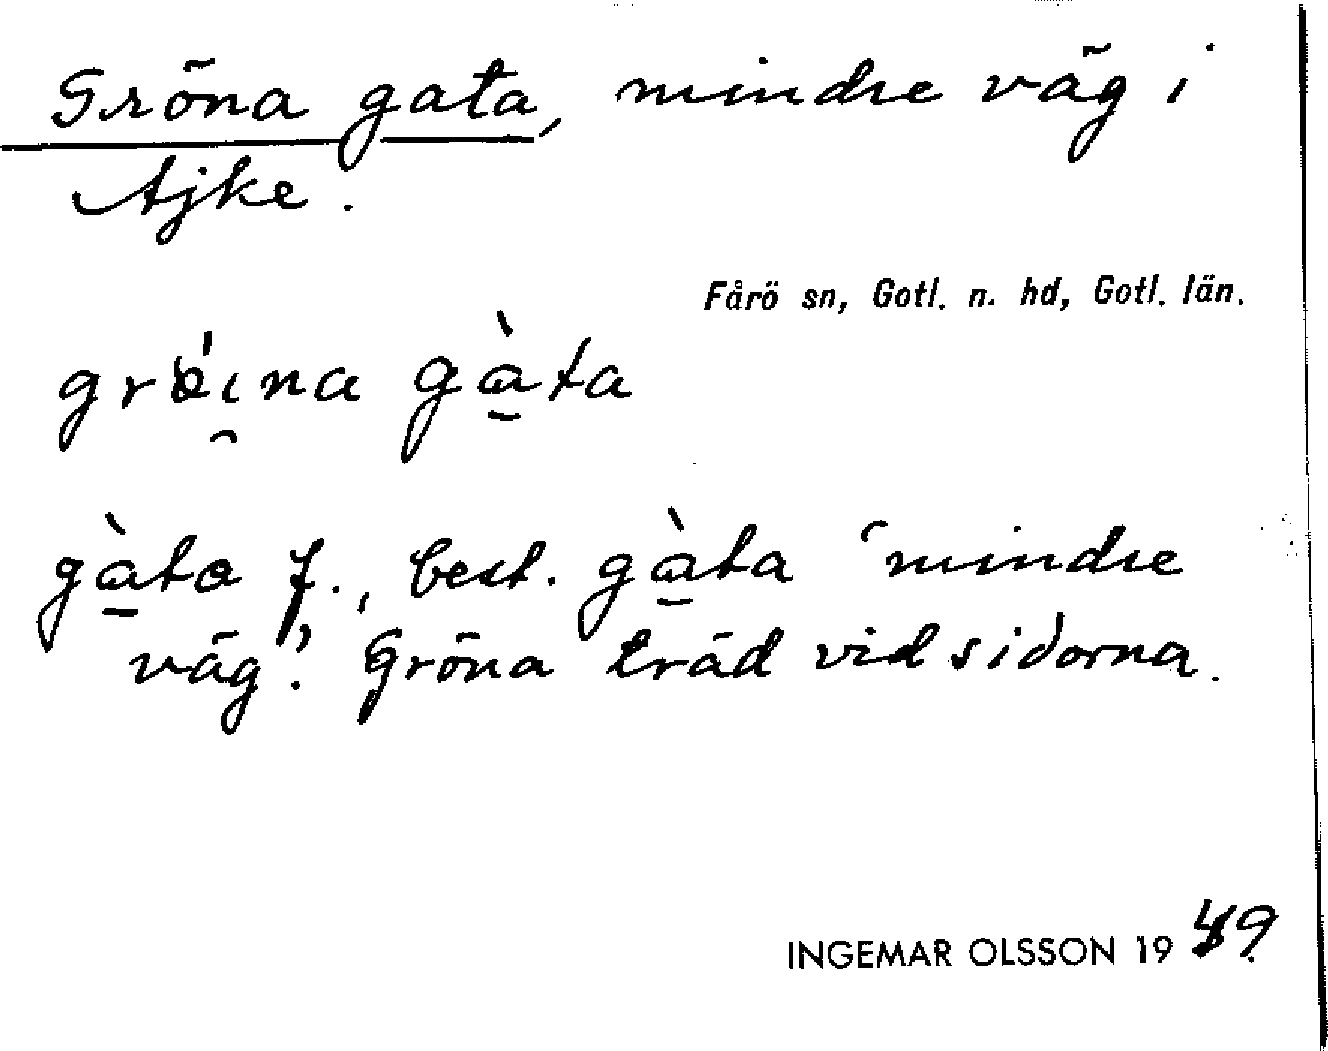 Gröna gata, mindre väg i
Ajke.
Fårö sn, Gotl. n. hd, Gotl. län.
gata
gàta f., best. gàta ʻmindre
väg ʼ. Gröna träd vid sidorna.
INGEMAR OLSSON 1949